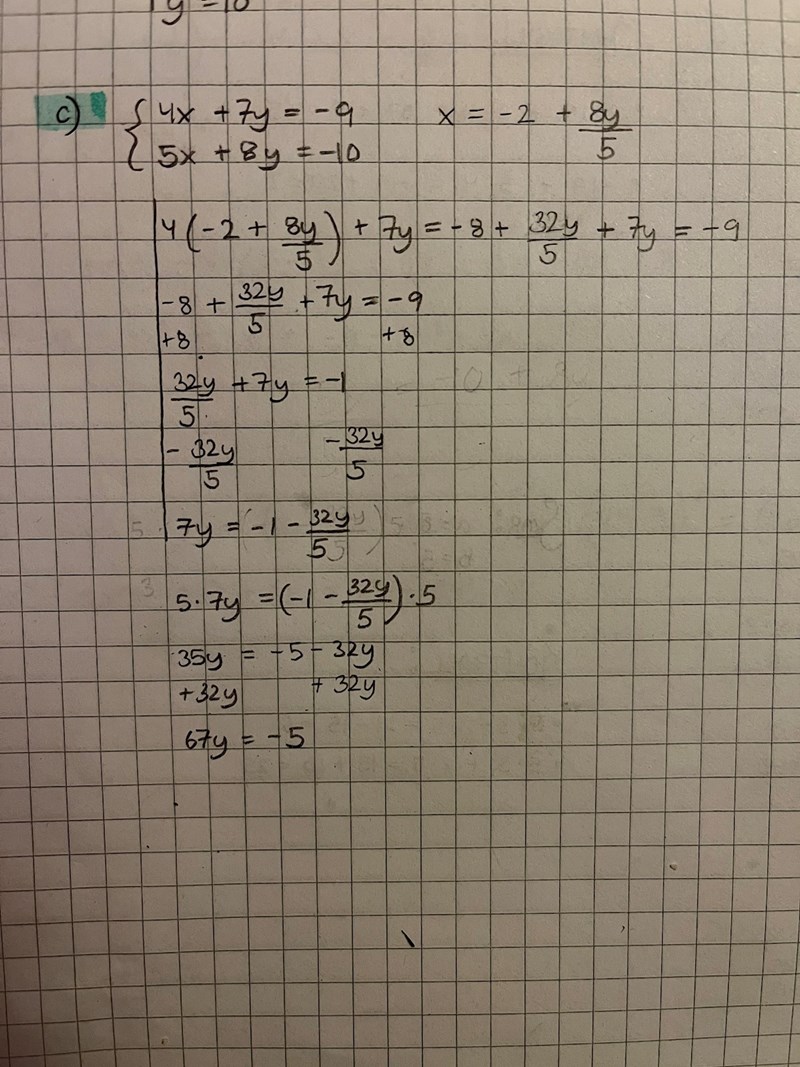 y = 10
c) { 4x + 7y = -9    x = -2 + 8y/5
5x + 8y = -10
4(-2 + 8y/5) + 7y = -8 + 32y/5 + 7y = -9
-8 + 32y/5 + 7y = -9
+8    +8
32y/5 + 7y = -1
- 32y/5    - 32y/5
7y = -1 - 32y/5
5·7y = (-1 - 32y/5)·5
35y = -5 - 32y
+32y    + 32y
67y = -5